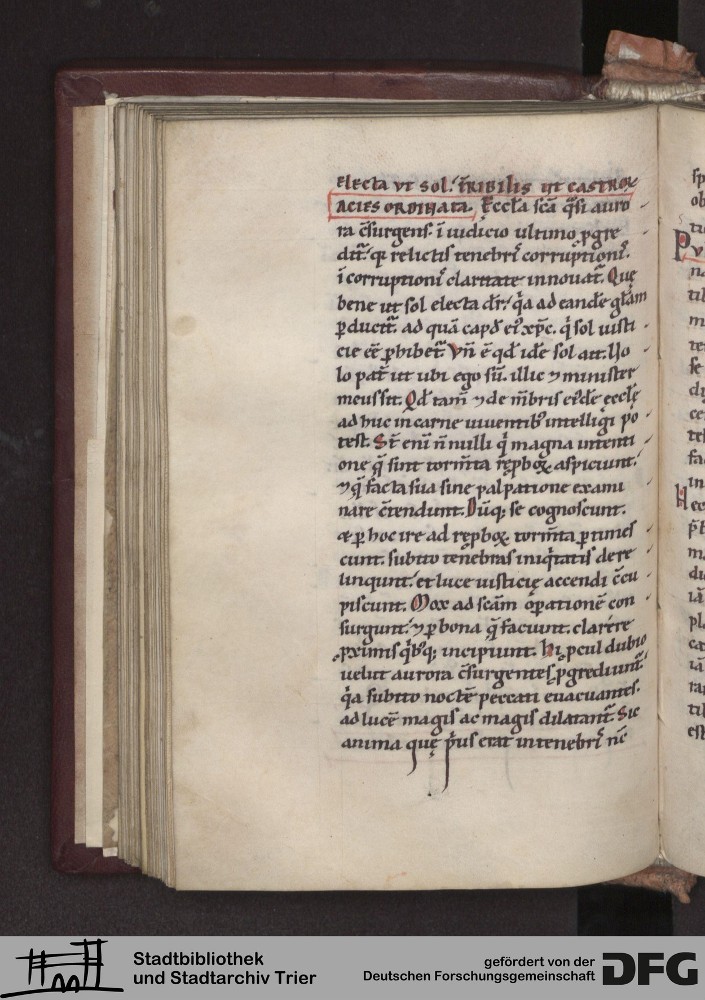 electa ut sol. t̄ribilis ut castroꝝ
acies ordinata. Eccl̄a sc̄a q̄si auro
ra c̄surgens. ī iudicio ultimo ꝓgre
dit᷑. qꝛ relictis tenebrꝭ corruptionꝭ.
ī corruptionꝭ claritate innouat᷑. Quę
bene ut sol electa dr̄. q̄a ad eandē gl̄am
ꝑducit᷑. ad quā caput eiꝰ xp̄c. q̄ sol iusti
cie eē ꝑhibet᷑. Vn̄ ē qd̄ idē sol ait. Uo
lo pat̄ ut ubi ego sū. illic ⁊ minister
meus sit. Qd̄ tam̄ ⁊ de m̄bris eiꝰdē eccl̄ę
ad huc in carne uiuentibꝰ intelligi po
test. St̄ eni n̄nulli q̄ magna intenti
one q̄ sint torm̄ta rep̄boꝝ aspiciunt.
⁊ q̄ facta sua sine palpatione exami
nare c̄tendunt. Dūq; se cognoscunt.
& ꝑ hoc ire ad rep̄boꝝ torm̄ta ꝑtimes
cunt. subito tenebras iniq̄tatis dere
linqunt. et luce iusticię accendi c̄cu
piscunt. Mox ad sc̄am oꝑationē con
surgunt. ⁊ ꝑ bona q̄ faciunt. clarére
ꝓximis q̄bꝰq; incipiunt. Hi ꝓcul dubio
uelut aurora c̄surgentes ꝓgrediunt᷑.
q̄a subito noctē peccati euacuantes.
ad lucē magis ac magis dilatant᷑. Sic
anima quę p̄us erat in tenebrꝭ nc̄
Stadtbibliothek
und Stadtarchiv Trier
gefördert von der
Deutschen Forschungsgemeinschaft
DFG